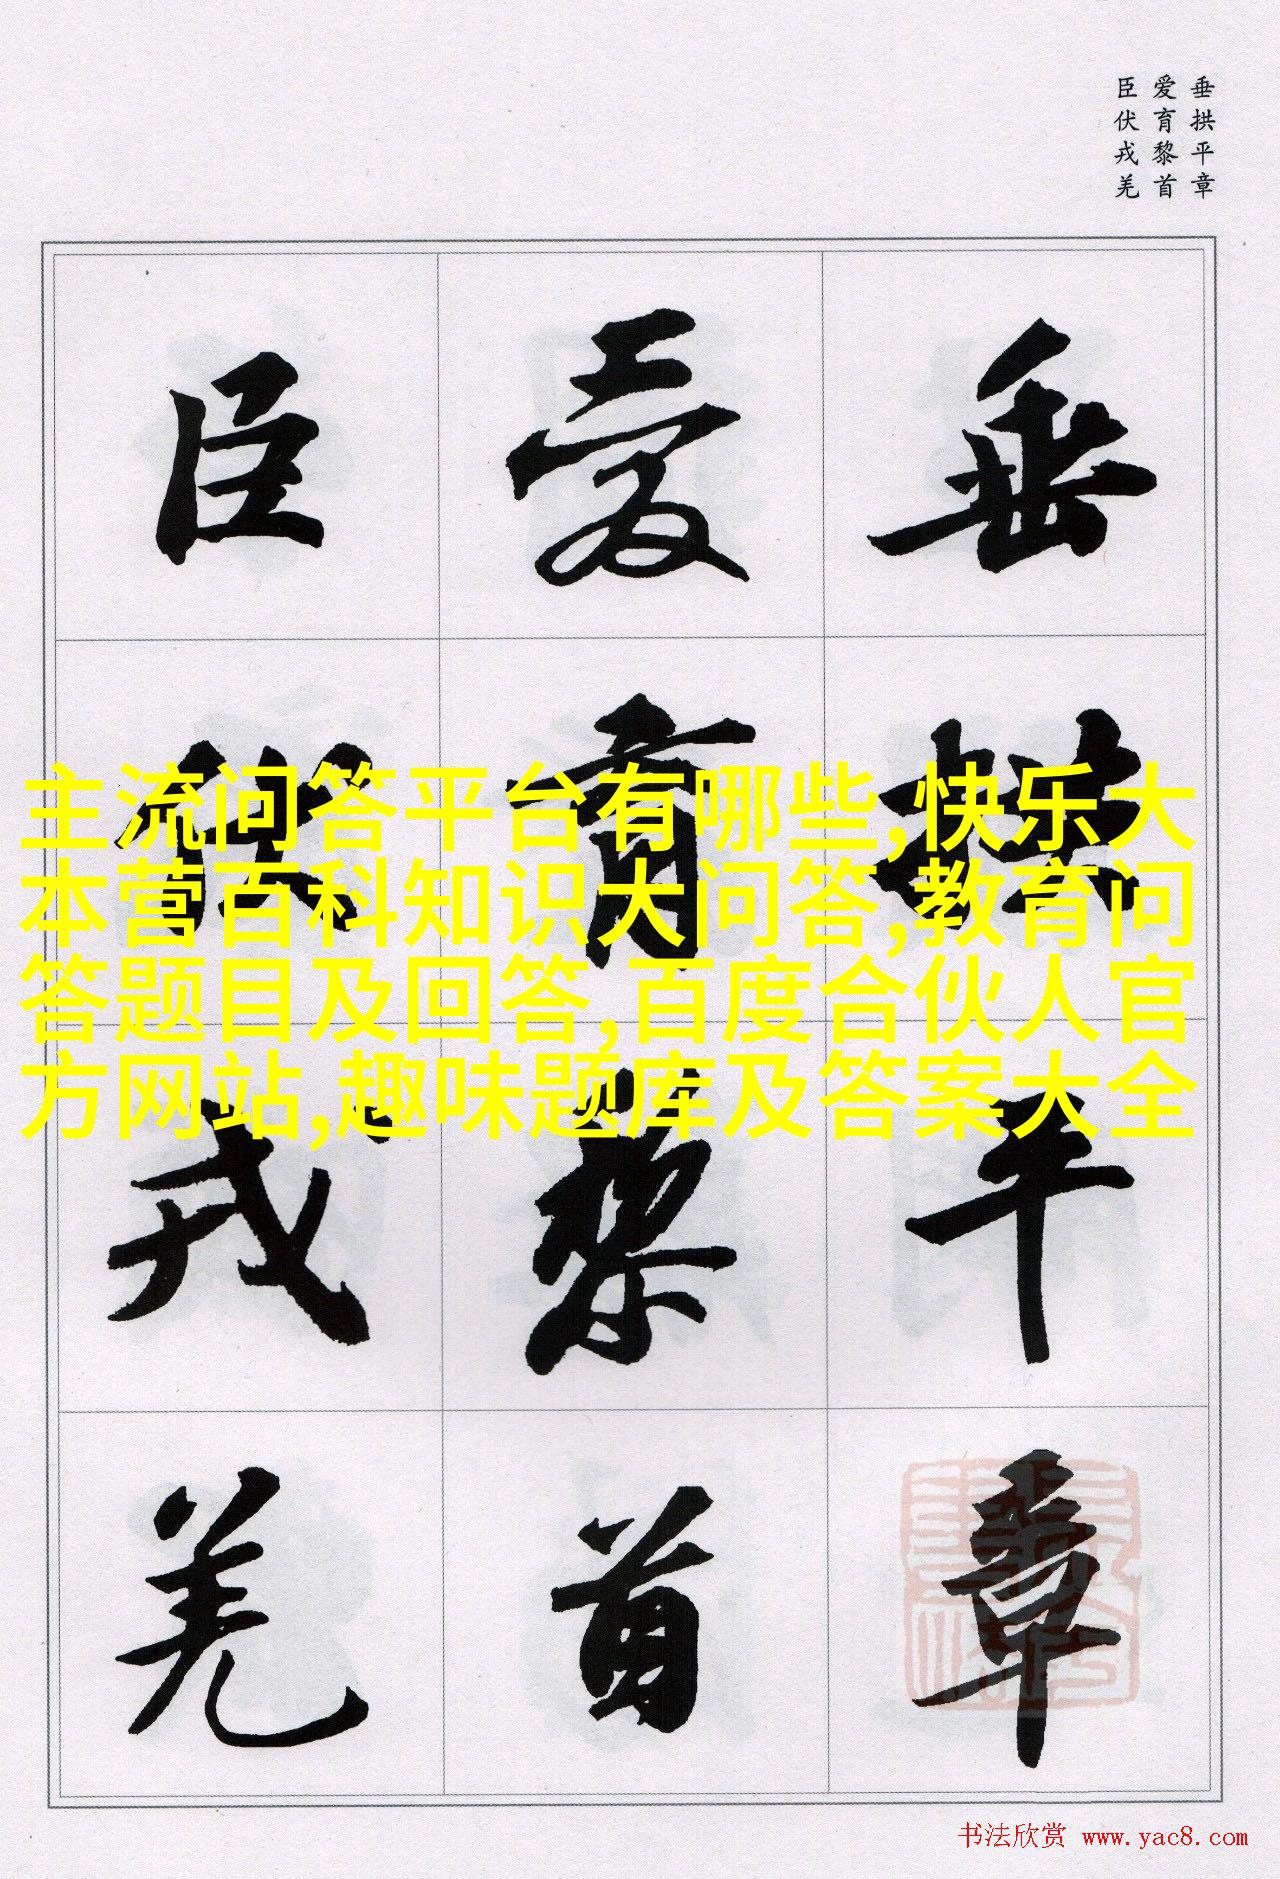 垂拱平章
爱育黎首
臣伏戎羌
垂拱平章
爱育黎首
臣伏戎羌
主流问答平台有哪些,快乐大
本营百科知识大问答,教育问
答题目及回答,百度合伙人官
方网站,趣味题库及答案大全
书法欣赏 www.yac8.com